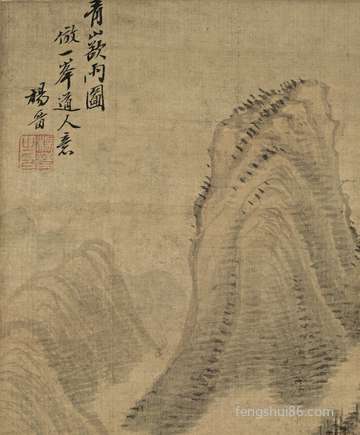 青山欲雨圖
倣一峯道人意
楊晉
fengshui86.com